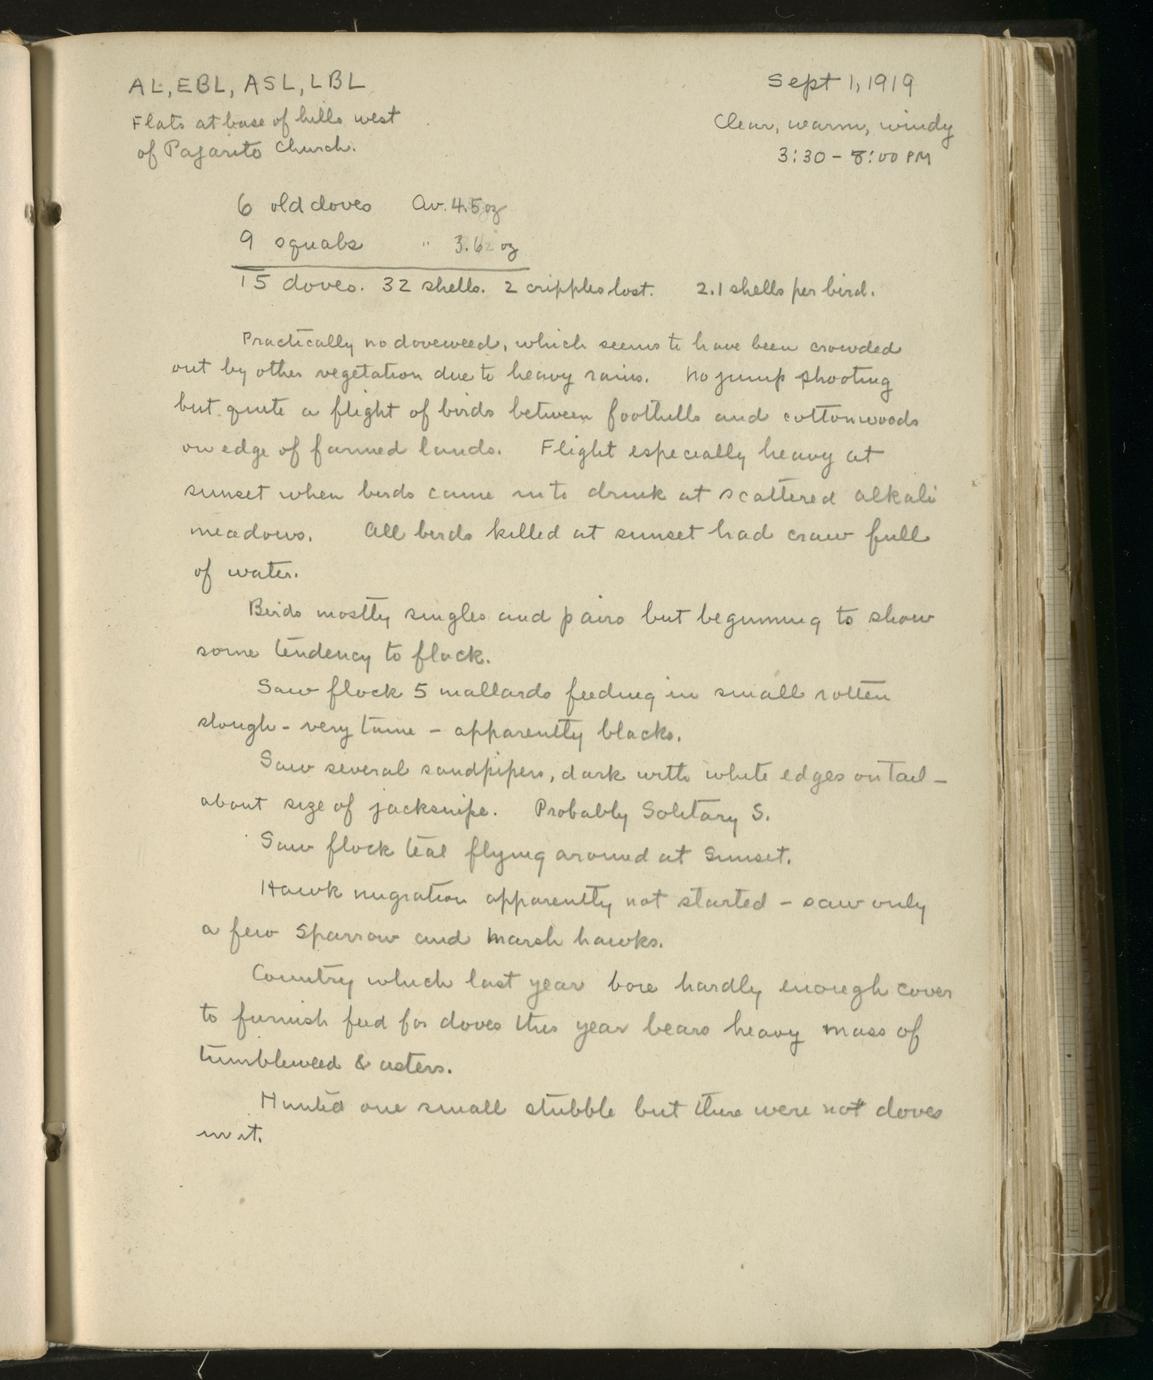 AL, EBL, ASL, LBL
Sept 1, 1919
Flats at base of hills west
of Pajarito Church.
Clear, warm, windy
3:30 - 8:00 PM
6 old doves Av. 4.5 oz
9 squabs " 3.6 oz
15 doves. 32 shells. 2 cripples lost. 2.1 shells per bird.
Practically no doveweed, which seems to have been crowded
out by other vegetation due to heavy rains. No jump shooting
but quite a flight of birds between foothills and cottonwoods
on edge of farmed lands. Flight especially heavy at
sunset when birds came in to drink at scattered alkali
meadows. All birds killed at sunset had craw full
of water.
Birds mostly singles and pairs but beginning to show
some tendency to flock.
Saw flock 5 mallards feeding in small rotten
slough - very tame - apparently blacks.
Saw several sandpipers, dark with white edges on tail -
about size of jacksnipe. Probably Solitary S.
Saw flock teal flying around at sunset.
Hawk migration apparently not started - saw only
a few Sparrow and Marsh hawks.
Country which last year bore hardly enough cover
to furnish feed for doves this year bears heavy mass of
tumbleweed & asters.
Hunted one small stubble but there were not doves
in it.